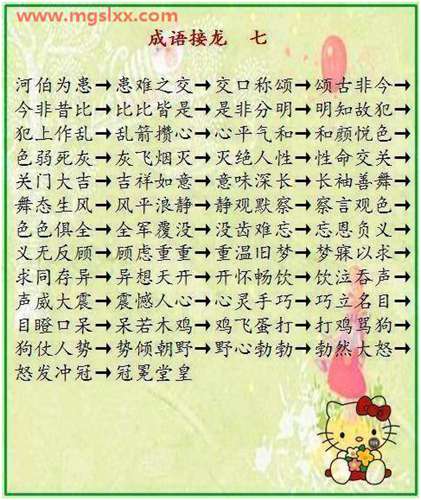 www.mgslxx.com
成语接龙 七
河伯为患→患难之交→交口称颂→颂古非今→
今非昔比→比比皆是→是非分明→明知故犯→
犯上作乱→乱箭攒心→心平气和→和颜悦色→
色弱死灰→灰飞烟灭→灭绝人性→性命交关→
关门大吉→吉祥如意→意味深长→长袖善舞→
舞态生风→风平浪静→静观默察→察言观色→
色色俱全→全军覆没→没齿难忘→忘恩负义→
义无反顾→顾虑重重→重温旧梦→梦寐以求→
求同存异→异想天开→开怀畅饮→饮泣吞声→
声威大震→震憾人心→心灵手巧→巧立名目→
目瞪口呆→呆若木鸡→鸡飞蛋打→打鸡骂狗→
狗仗人势→势倾朝野→野心勃勃→勃然大怒→
怒发冲冠→冠冕堂皇